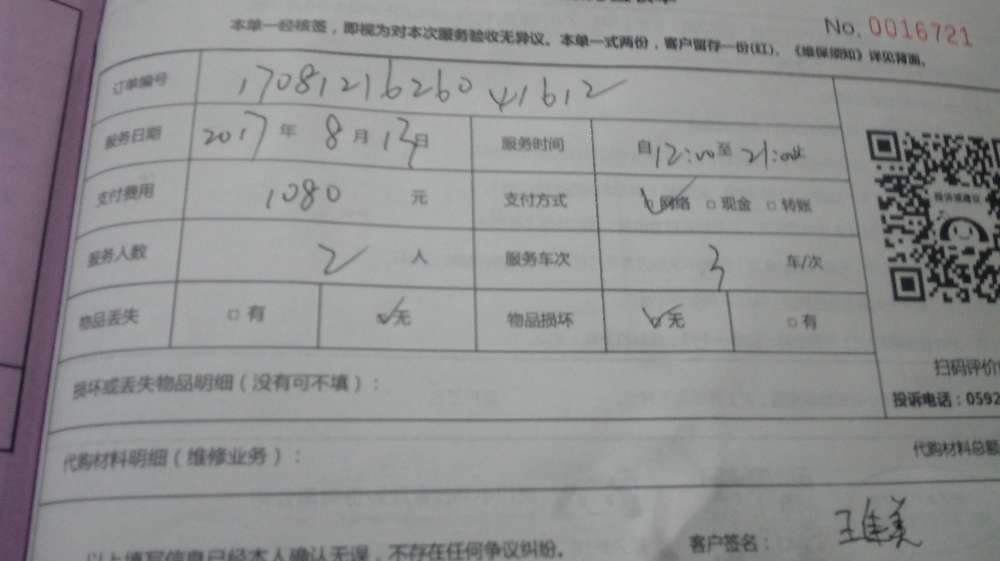 No. 0016721
本单一经核签，即视为对本次服务验收无异议。本单一式两份，客户留存一份(红)，《维保须知》详见背面。
订单编号 170812162604 1612
服务日期 2017 年 8 月 13 日 服务时间 自 12:00 至 21:00
支付费用 1080 元 支付方式 ☑网络 □现金 □转账
服务人数 2 人 服务车次 3 车/次
物品丢失 □有 ☑无 物品损坏 ☑无 □有
投诉或建议
损坏或丢失物品明细（没有可不填）：
扫码评价
投诉电话：0592
代购材料明细（维修业务）：
代购材料总额
以上填写信息已经本人确认无误，不存在任何争议纠纷。
客户签名：